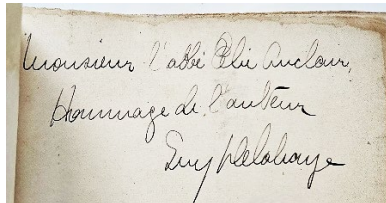 Monsieur l'abbé Elie Auclair,
Hommage de l'auteur
Guy Delahaye